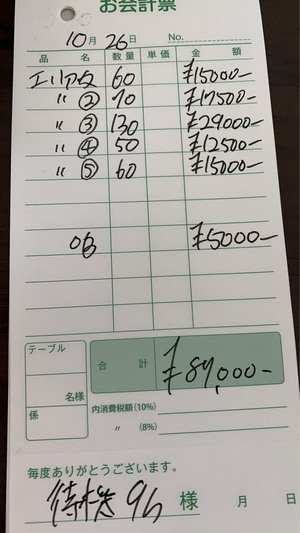 お会計票
10月 26日 No.
品 名 数量 単価 金 額
60 ¥15000-
〃 ② 70 ¥17500-
〃 ③ 130 ¥29000-
〃 ④ 50 ¥12500-
〃 ⑤ 60 ¥15000-
OB ¥5000-
テーブル
名様
係
合 計 ¥89,000-
内消費税額(10%)
〃 (8%)
毎度ありがとうございます。
待機 9h 様 月 日